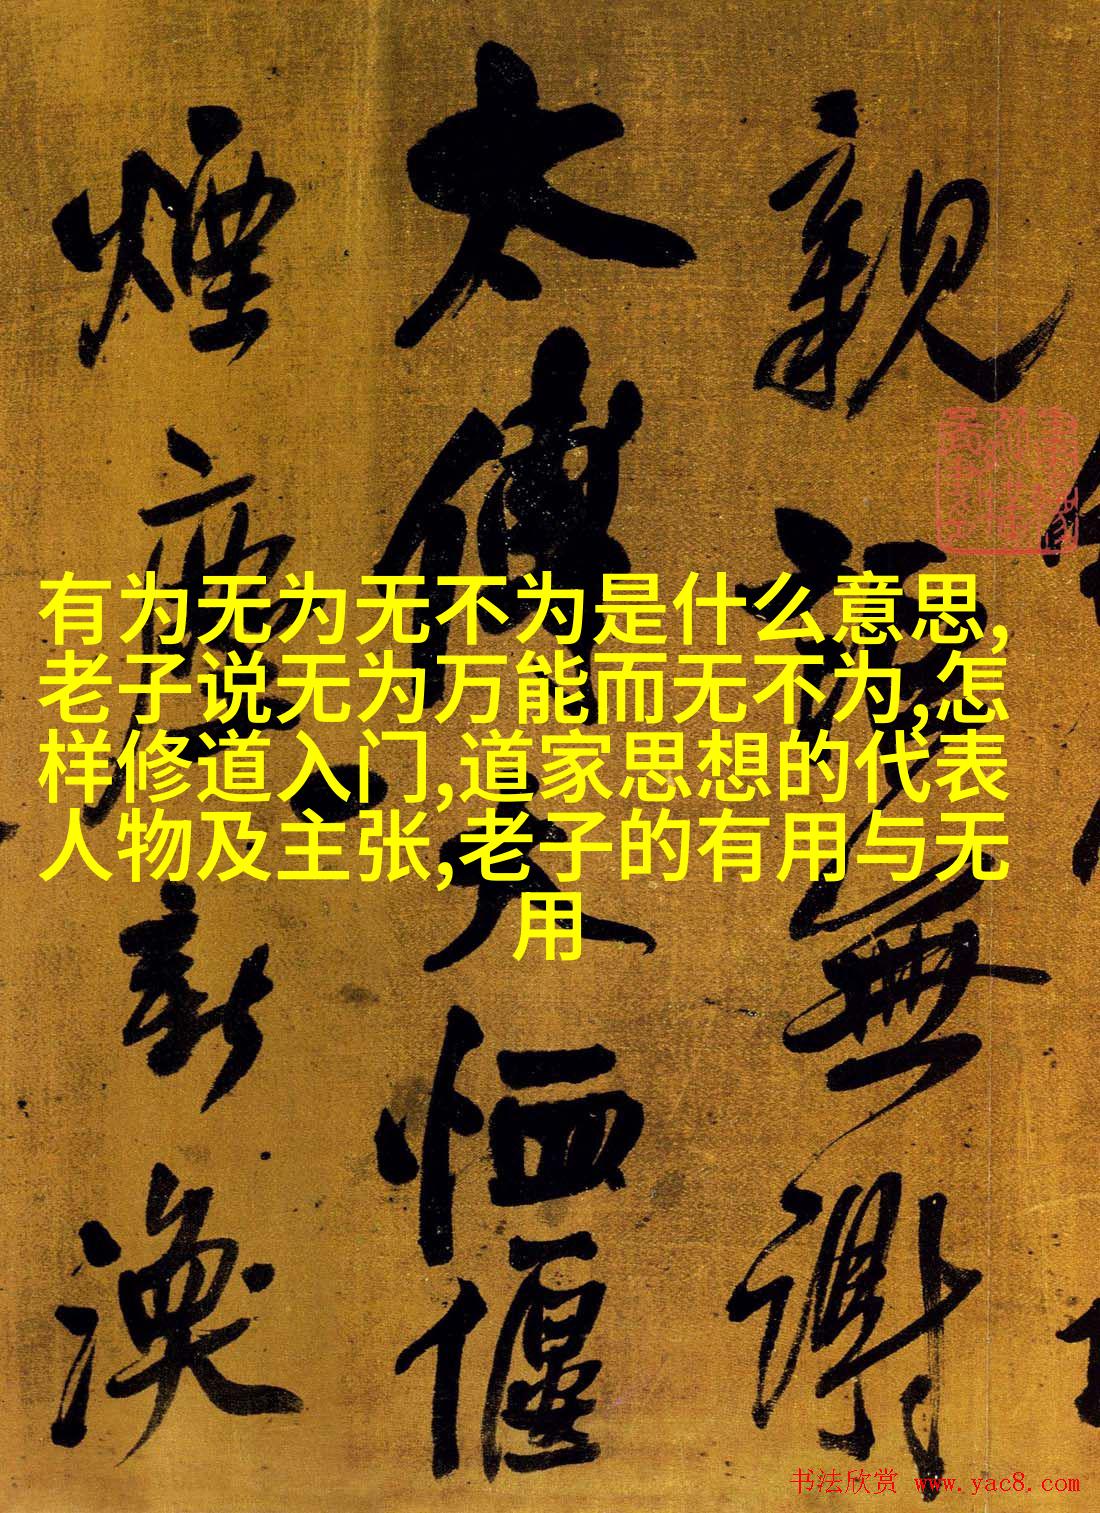 親無謝
太傅大恤偃
煙新渙
有为无为无不为是什么意思,
老子说无为万能而无不为,怎
样修道入门,道家思想的代表
人物及主张,老子的有用与无
用
书法欣赏 www.yac8.com